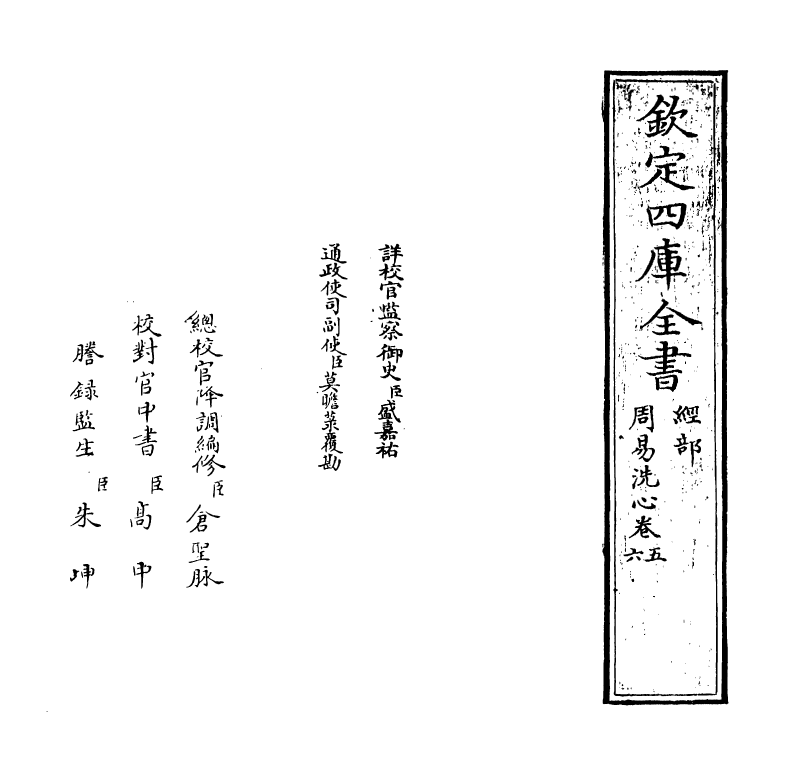 欽定四庫全書
經部
周易洗心卷五六
詳校官監察御史臣盛嘉祐
通政使司副使臣莫瞻菉覆勘
總校官降調編修臣倉聖脉
校對官中書臣高中
謄錄監生臣朱坤